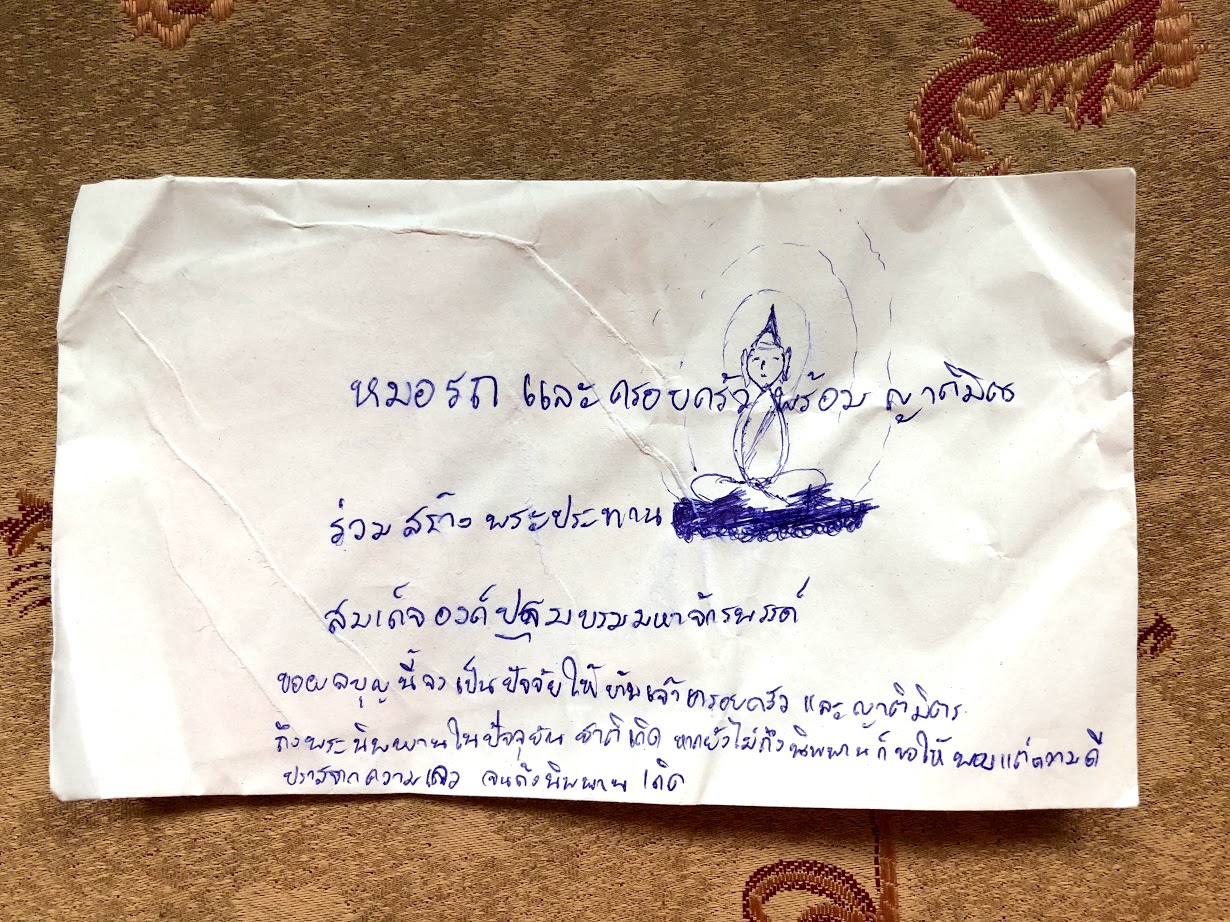 หมอรถ และ ครอบครัว พร้อม ญาติมิตร
ร่วม สร้าง พระประทาน
สมเด็จ องค์ปฐมบรมมหาจักรพรรดิ์
ขอผลบุญนี้ จง เป็น ปัจจัย ให้ ข้าพเจ้า ครอบครัว และ ญาติมิตร
ถึงพระนิพพานในปัจจุบัน ชาติ เถิด หากยังไม่ถึงนิพพานก็ ขอให้ พบแต่ความดี
ปราศจาก ความเลว จนถึงนิพพาน เถิด